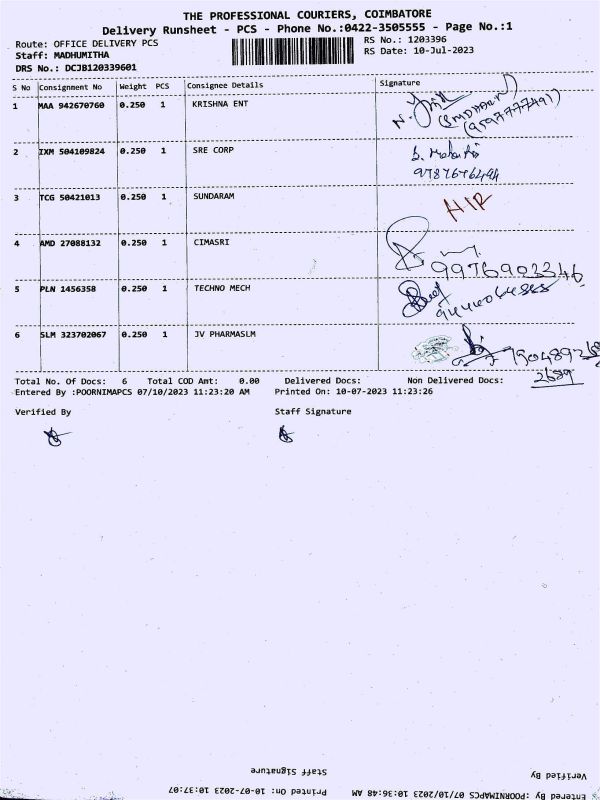 THE PROFESSIONAL COURIERS, COIMBATORE
Delivery Runsheet - PCS - Phone No.:0422-3505555 - Page No.:1
Route: OFFICE DELIVERY PCS RS No.: 1203396
Staff: MADHUMITHA RS Date: 10-Jul-2023
DRS No.: DCJB120339601
S No Consignment No Weight PCS Consignee Details Signature
1 MAA 942670760 0.250 1 KRISHNA ENT
2 IXM 504109824 0.250 1 SRE CORP
3 TCG 50421013 0.250 1 SUNDARAM
4 AMD 27088132 0.250 1 CIMASRI
9976903346
5 PLN 1456358 0.250 1 TECHNO MECH
6 SLM 323702067 0.250 1 JV PHARMASLM
2689
Total No. Of Docs: 6 Total COD Amt: 0.00 Delivered Docs: Non Delivered Docs:
Entered By :POORNIMAPCS 07/10/2023 11:23:20 AM Printed On: 10-07-2023 11:23:26
Verified By Staff Signature
Verified By Staff Signature
Entered By :POORNIMAPCS 07/10/2023 10:36:48 AM Printed On: 10-07-2023 10:37:07